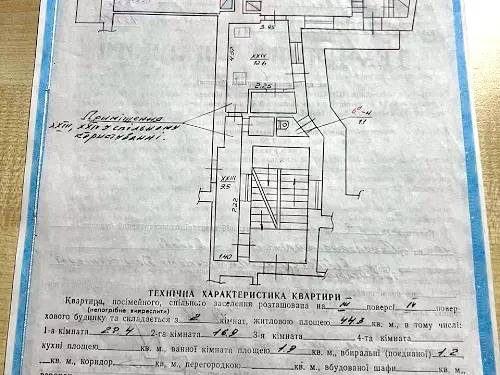 3.95
4.57
XXIV
12.6
2.25
Приміщення
XXIII, XXIV у спільному
користуванні.
6²-ч
1.1
XXIII
9.5
7.22
1.40
ТЕХНІЧНА ХАРАКТЕРИСТИКА КВАРТИРИ
Квартира, посімейного, спільного заселення розташована на III поверсі IV повер-
(непотрібне викреслити)
хового будинку та складається з 2 кімнат, житловою площею 44.3 кв. м., а тому числі:
1-а кімната 27.4 2-га кімната 16.9 3-я кімната 4-та кімната
кухні площею кв. м., ванної кімнати площею 1.9 кв. м., вбиральні (поєднаної) 1.2
кв. м., коридор кв. м., перегородкою кв. м., вбудованої шафи кв. м.,